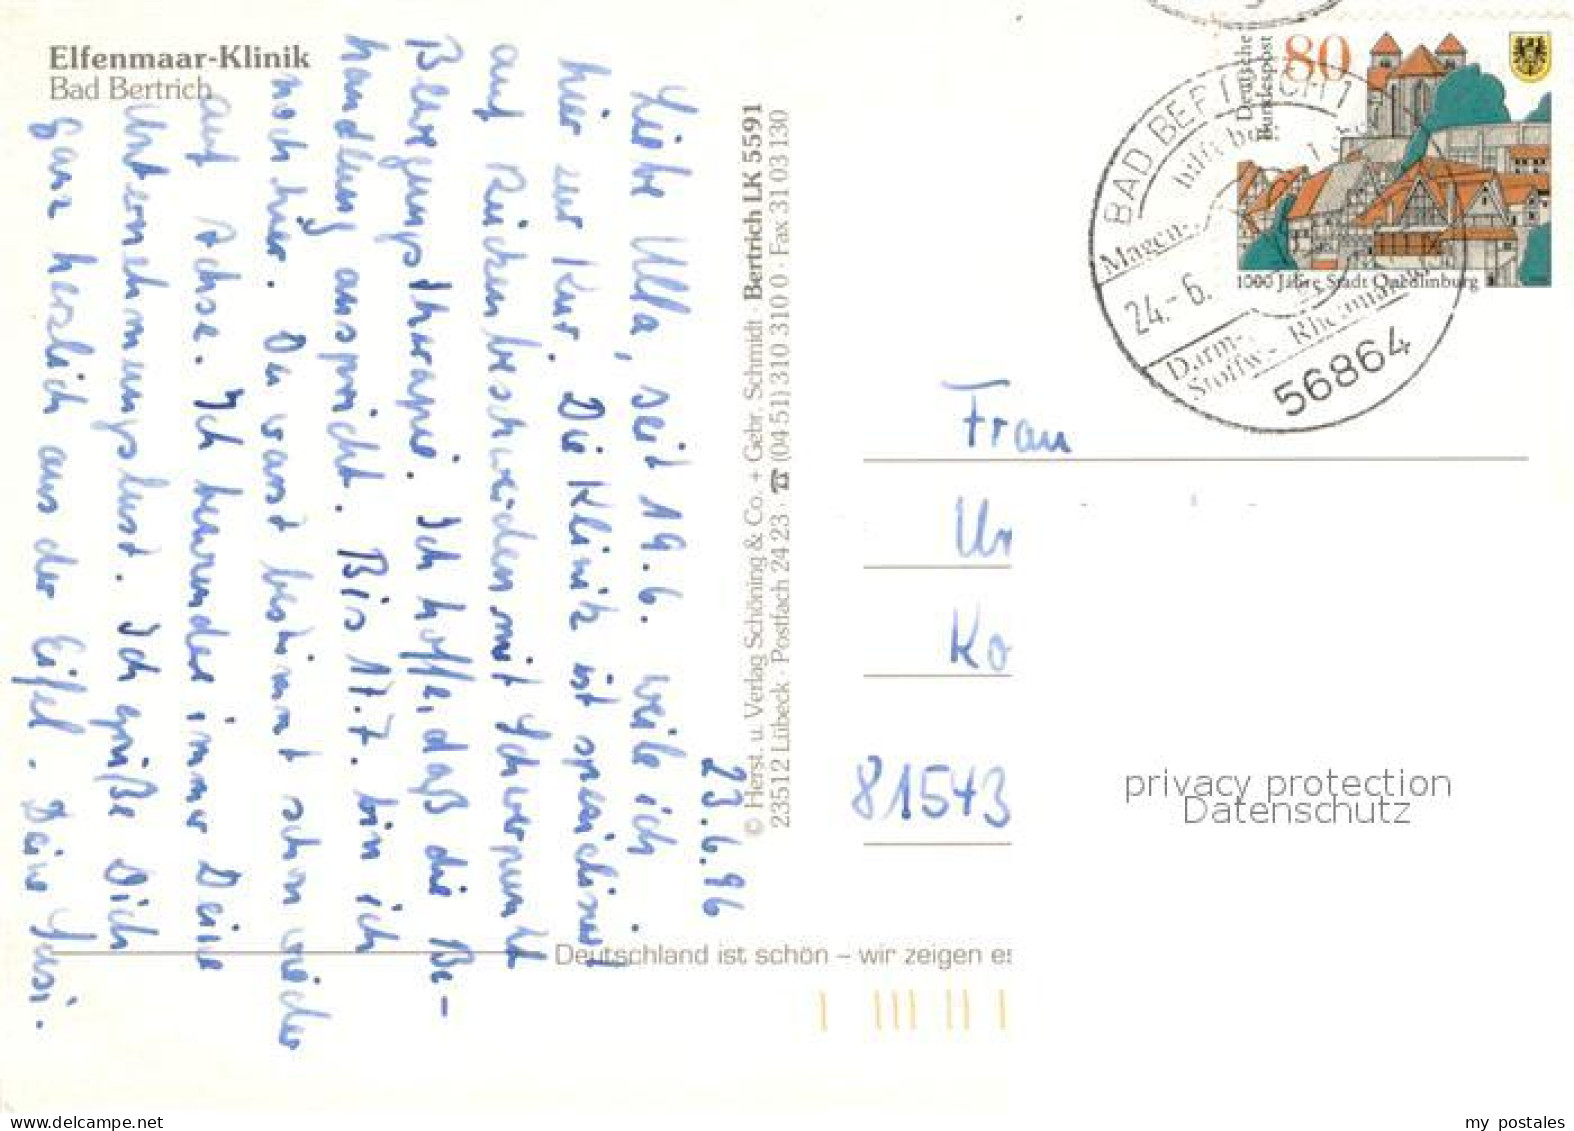 Elfenmaar-Klinik
Bad Bertrich
23.6.96
Liebe Ulla, seit 19.6. weile ich
hier zur Kur. Die Klinik ist spezialisiert
auf Rückenbeschwerden mit Schwerpunkt
Bewegungstherapie. Ich hoffe, daß die Be-
handlung anspricht. Bis 17.7. bin ich
noch hier. Du warst bestimmt schon wieder
auf Achse. Ich bewundere immer Deine
Unternehmungslust. Ich grüße Dich
ganz herzlich aus der Eifel. Deine Susi.
© Herst. u. Verlag Schöning & Co. + Gebr. Schmidt · Bertrich LK 5591
23512 Lübeck · Postfach 24 23 · ☎ (04 51) 310 310 0 · Fax 31 03 130
Deutschland ist schön – wir zeigen es
Deutsche
Bundespost
80
1000 Jahre Stadt Quedlinburg
BAD BERTRICH 1
hilft bei
Magen-
24.-6.
Darm-
Stoffw.-
Rheumakur
56864
Frau
Ur
Ko
81543
privacy protection
Datenschutz
my postales